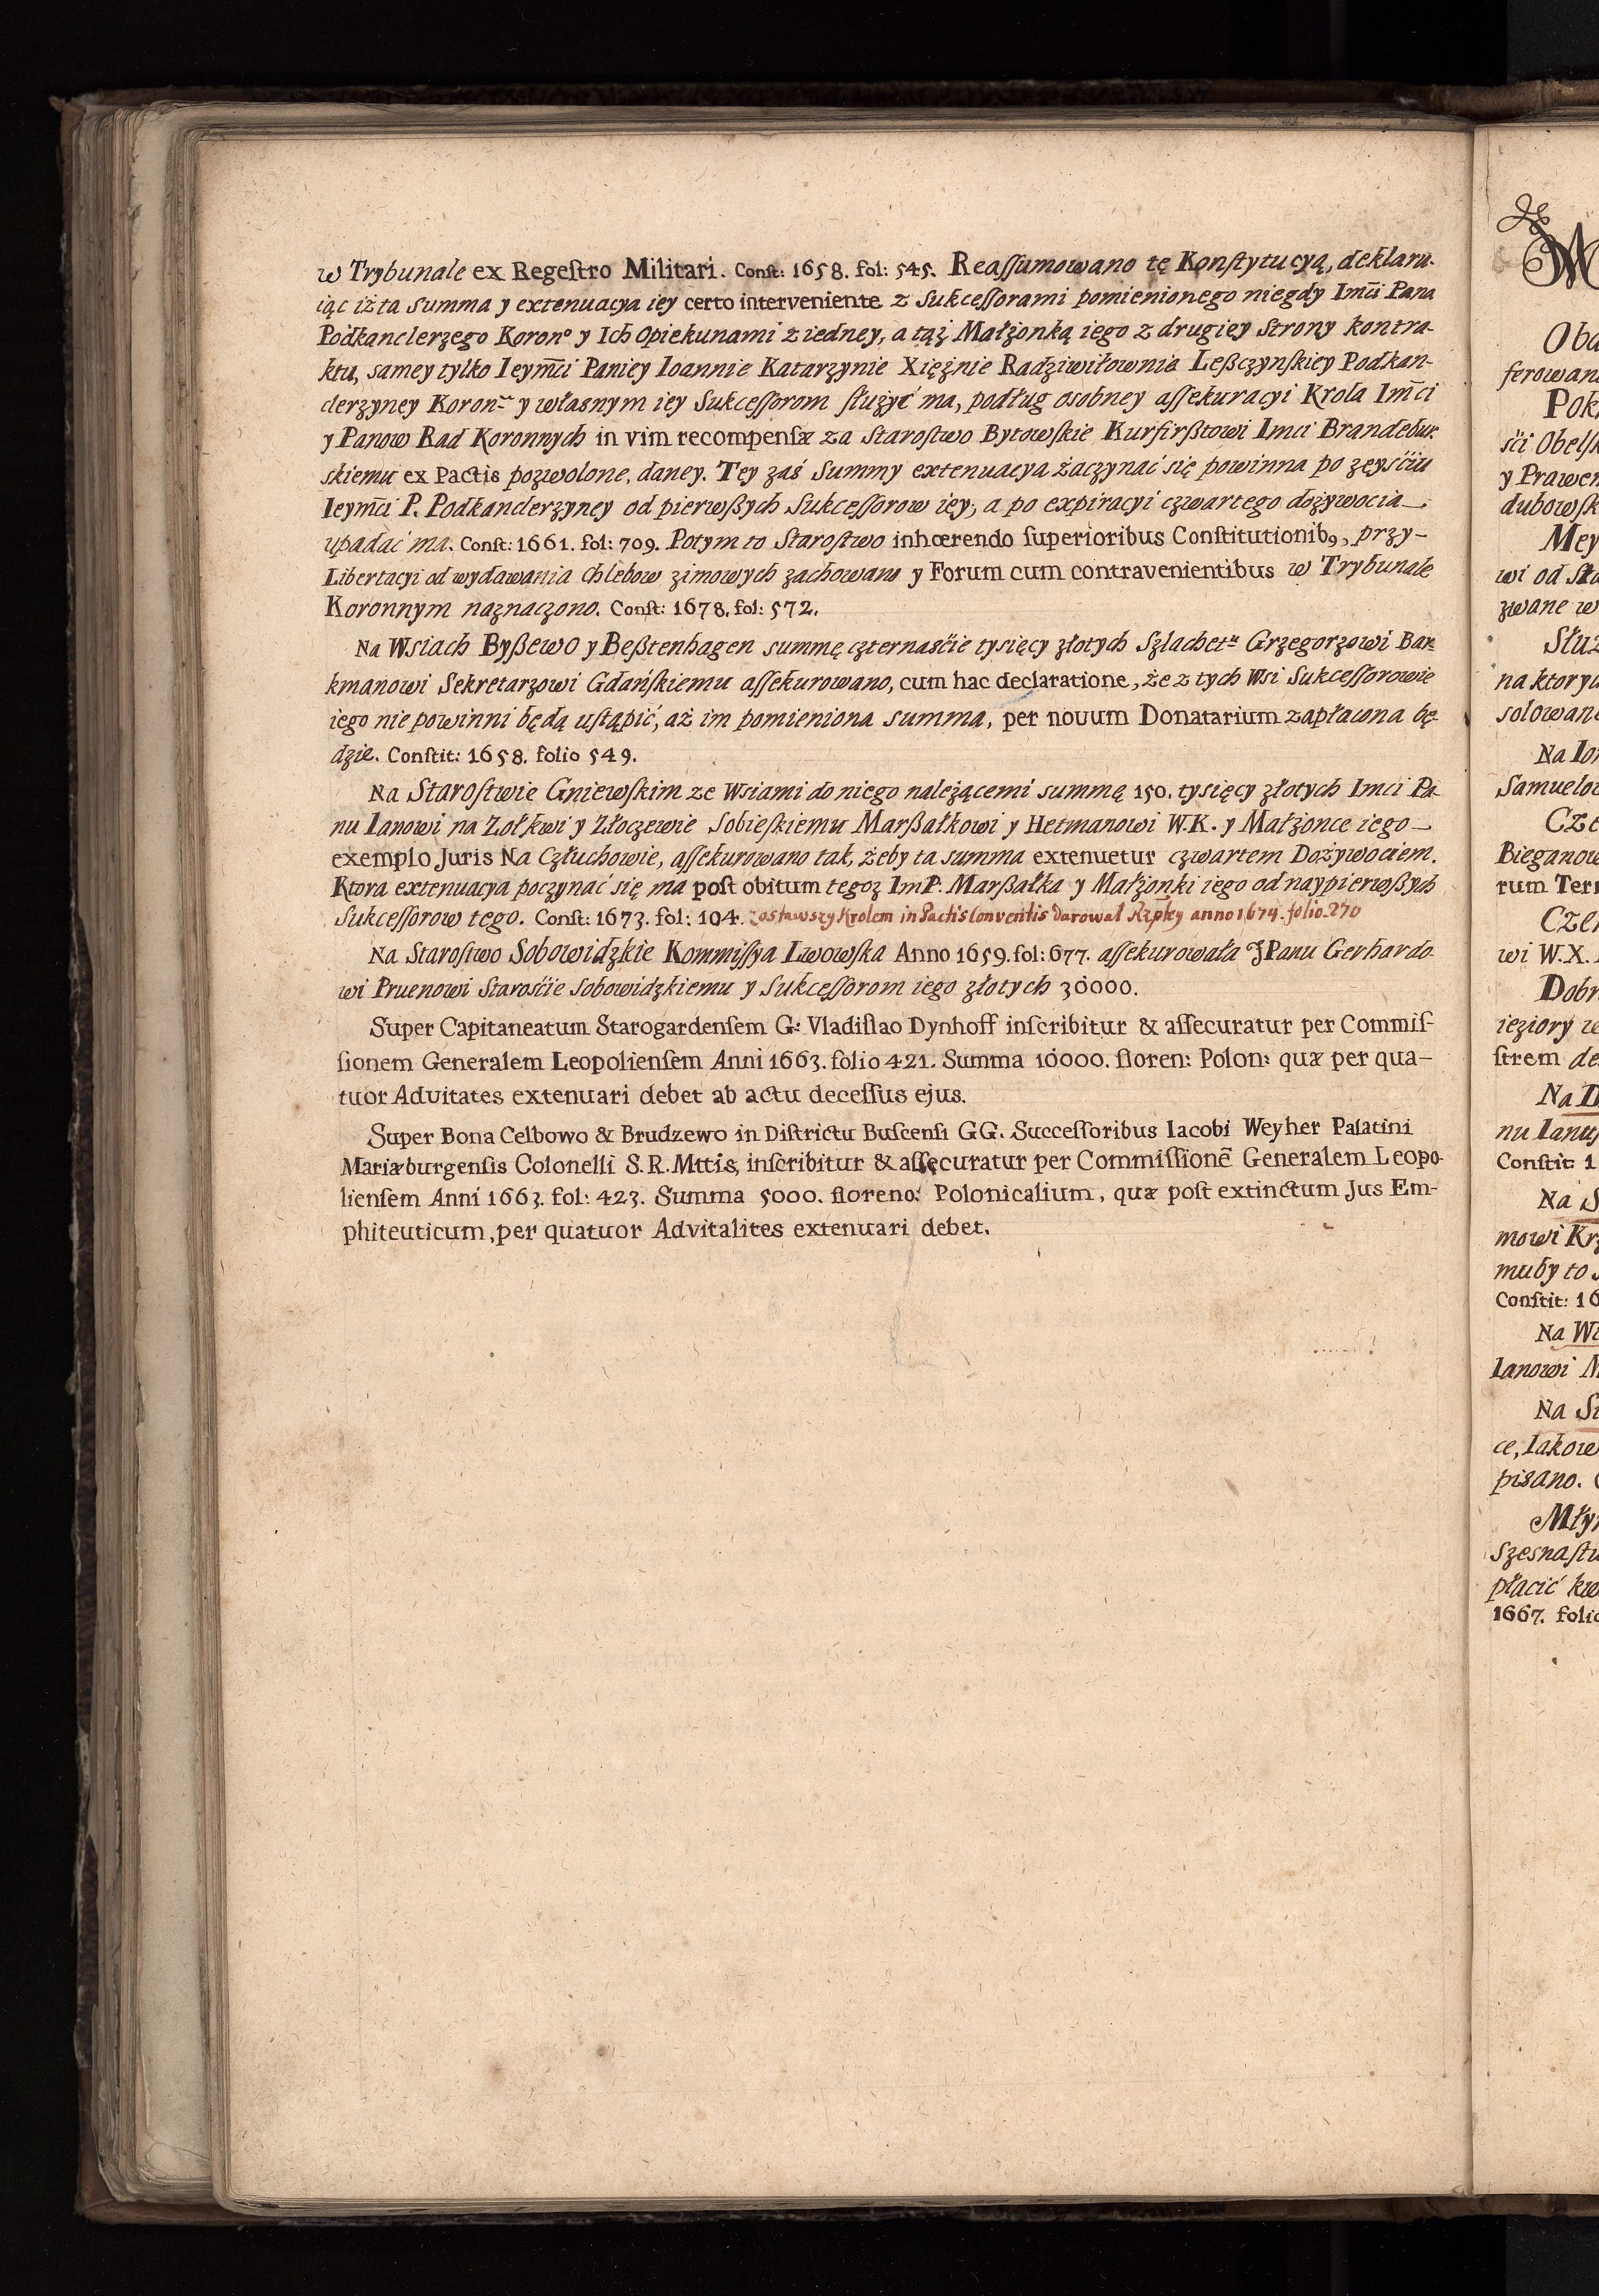 w Trybunale ex Regeſtro Militari. Conſt: 1658. fol: 545. Reaſſumowano tę Konſtytucyą, deklaru-
iąc iż ta summa y extenuacya iey certo interveniente z Sukceſſorami pomienionego niegdy Imci Pana
Podkanclerzego Koron° y Ich Opiekunami z iedney, a tąż Małżonką iego z drugiey Strony kontra-
ktu, samey tylko Ieymci Paniey Ioannie Katarzynie Xiężnie Radziwiłownie Leßczynſkiey Podkan-
clerzyney Koron y własnym iey Sukceſſorom ſłużyć ma, podług osobney aſſekuracyi Krola Imci
y Panow Rad Koronnych in vim recompenſæ za Staroſtwo Bytowſkie Kurfirßtowi Imci Brandebur-
skiemu ex Pactis pozwolone, daney. Tey zaś Summy extenuacya zaczynać się powinna po zeyściu
Ieymci P. Podkanclerzyney od pierwßych Sukceſſorow iey, a po expiracyi czwartego dożywocia—
upadać ma. Conſt: 1661. fol: 709. Potym to Staroſtwo inhœrendo ſuperioribus Conſtitutionib9, przy-
Libertacyi od wydawania Chlebow zimowych zachowano y Forum cum contravenientibus w Trybunale
Koronnym naznaczono. Conſt: 1678. fol: 572.
Na Wsiach Byßewo y Beßtenhagen summę czternaście tysięcy złotych Szlachetu Grzegorzowi Bar-
kmanowi Sekretarzowi Gdańſkiemu aſſekurowano, cum hac declaratione, że z tych Wsi Sukceſſorowie
iego nie powinni będą uſtąpić, aż im pomieniona summa, per nouum Donatarium zapłacona bę-
dzie. Conſtit: 1658. folio 549.
Na Staroſtwie Gniewſkim ze Wsiami do niego należącemi summę 150. tysięcy złotych Imci Pa-
nu Ianowi na Zołkwi y Złoczewie Sobieſkiemu Marßałkowi y Hetmanowi W.K. y Małżonce iego—
exemplo Juris Na Człuchowie, aſſekurowano tak, żeby ta summa extenuetur czwartem Dożywociem.
Ktora extenuacya poczynać się ma poſt obitum tegoż ImP. Marßałka y Małżonki iego od naypierwßych
Sukceſſorow tego. Conſt: 1673. fol: 104. zostawszy Krolem in Pactis Conventis darował Rzptey anno 1674. folio 270
Na Staroſtwo Sobowidzkie Kommiſſya Lwowſka Anno 1659. fol: 677. aſſekurowała JPanu Gerhardo-
wi Pruenowi Staroście Sobowidzkiemu y Sukceſſorom iego złotych 30000.
Super Capitaneatum Starogardenſem G: Vladiſlao Dynhoff inſcribitur & aſſecuratur per Commiſ-
ſionem Generalem Leopolienſem Anni 1663. folio 421. Summa 10000. floren: Polon: quæ per qua-
tuor Advitates extenuari debet ab actu deceſſus ejus.
Super Bona Celbowo & Brudzewo in Diſtrictu Buſcenſi GG. Succeſſoribus Iacobi Weyher Palatini
Mariæburgenſis Colonelli S. R. Mttis, inſcribitur & aſſecuratur per Commiſſionē Generalem Leopo-
lienſem Anni 1663. fol: 423. Summa 5000. floreno: Polonicalium, quæ poſt extinctum Jus Em-
phiteuticum, per quatuor Advitalites extenuari debet.